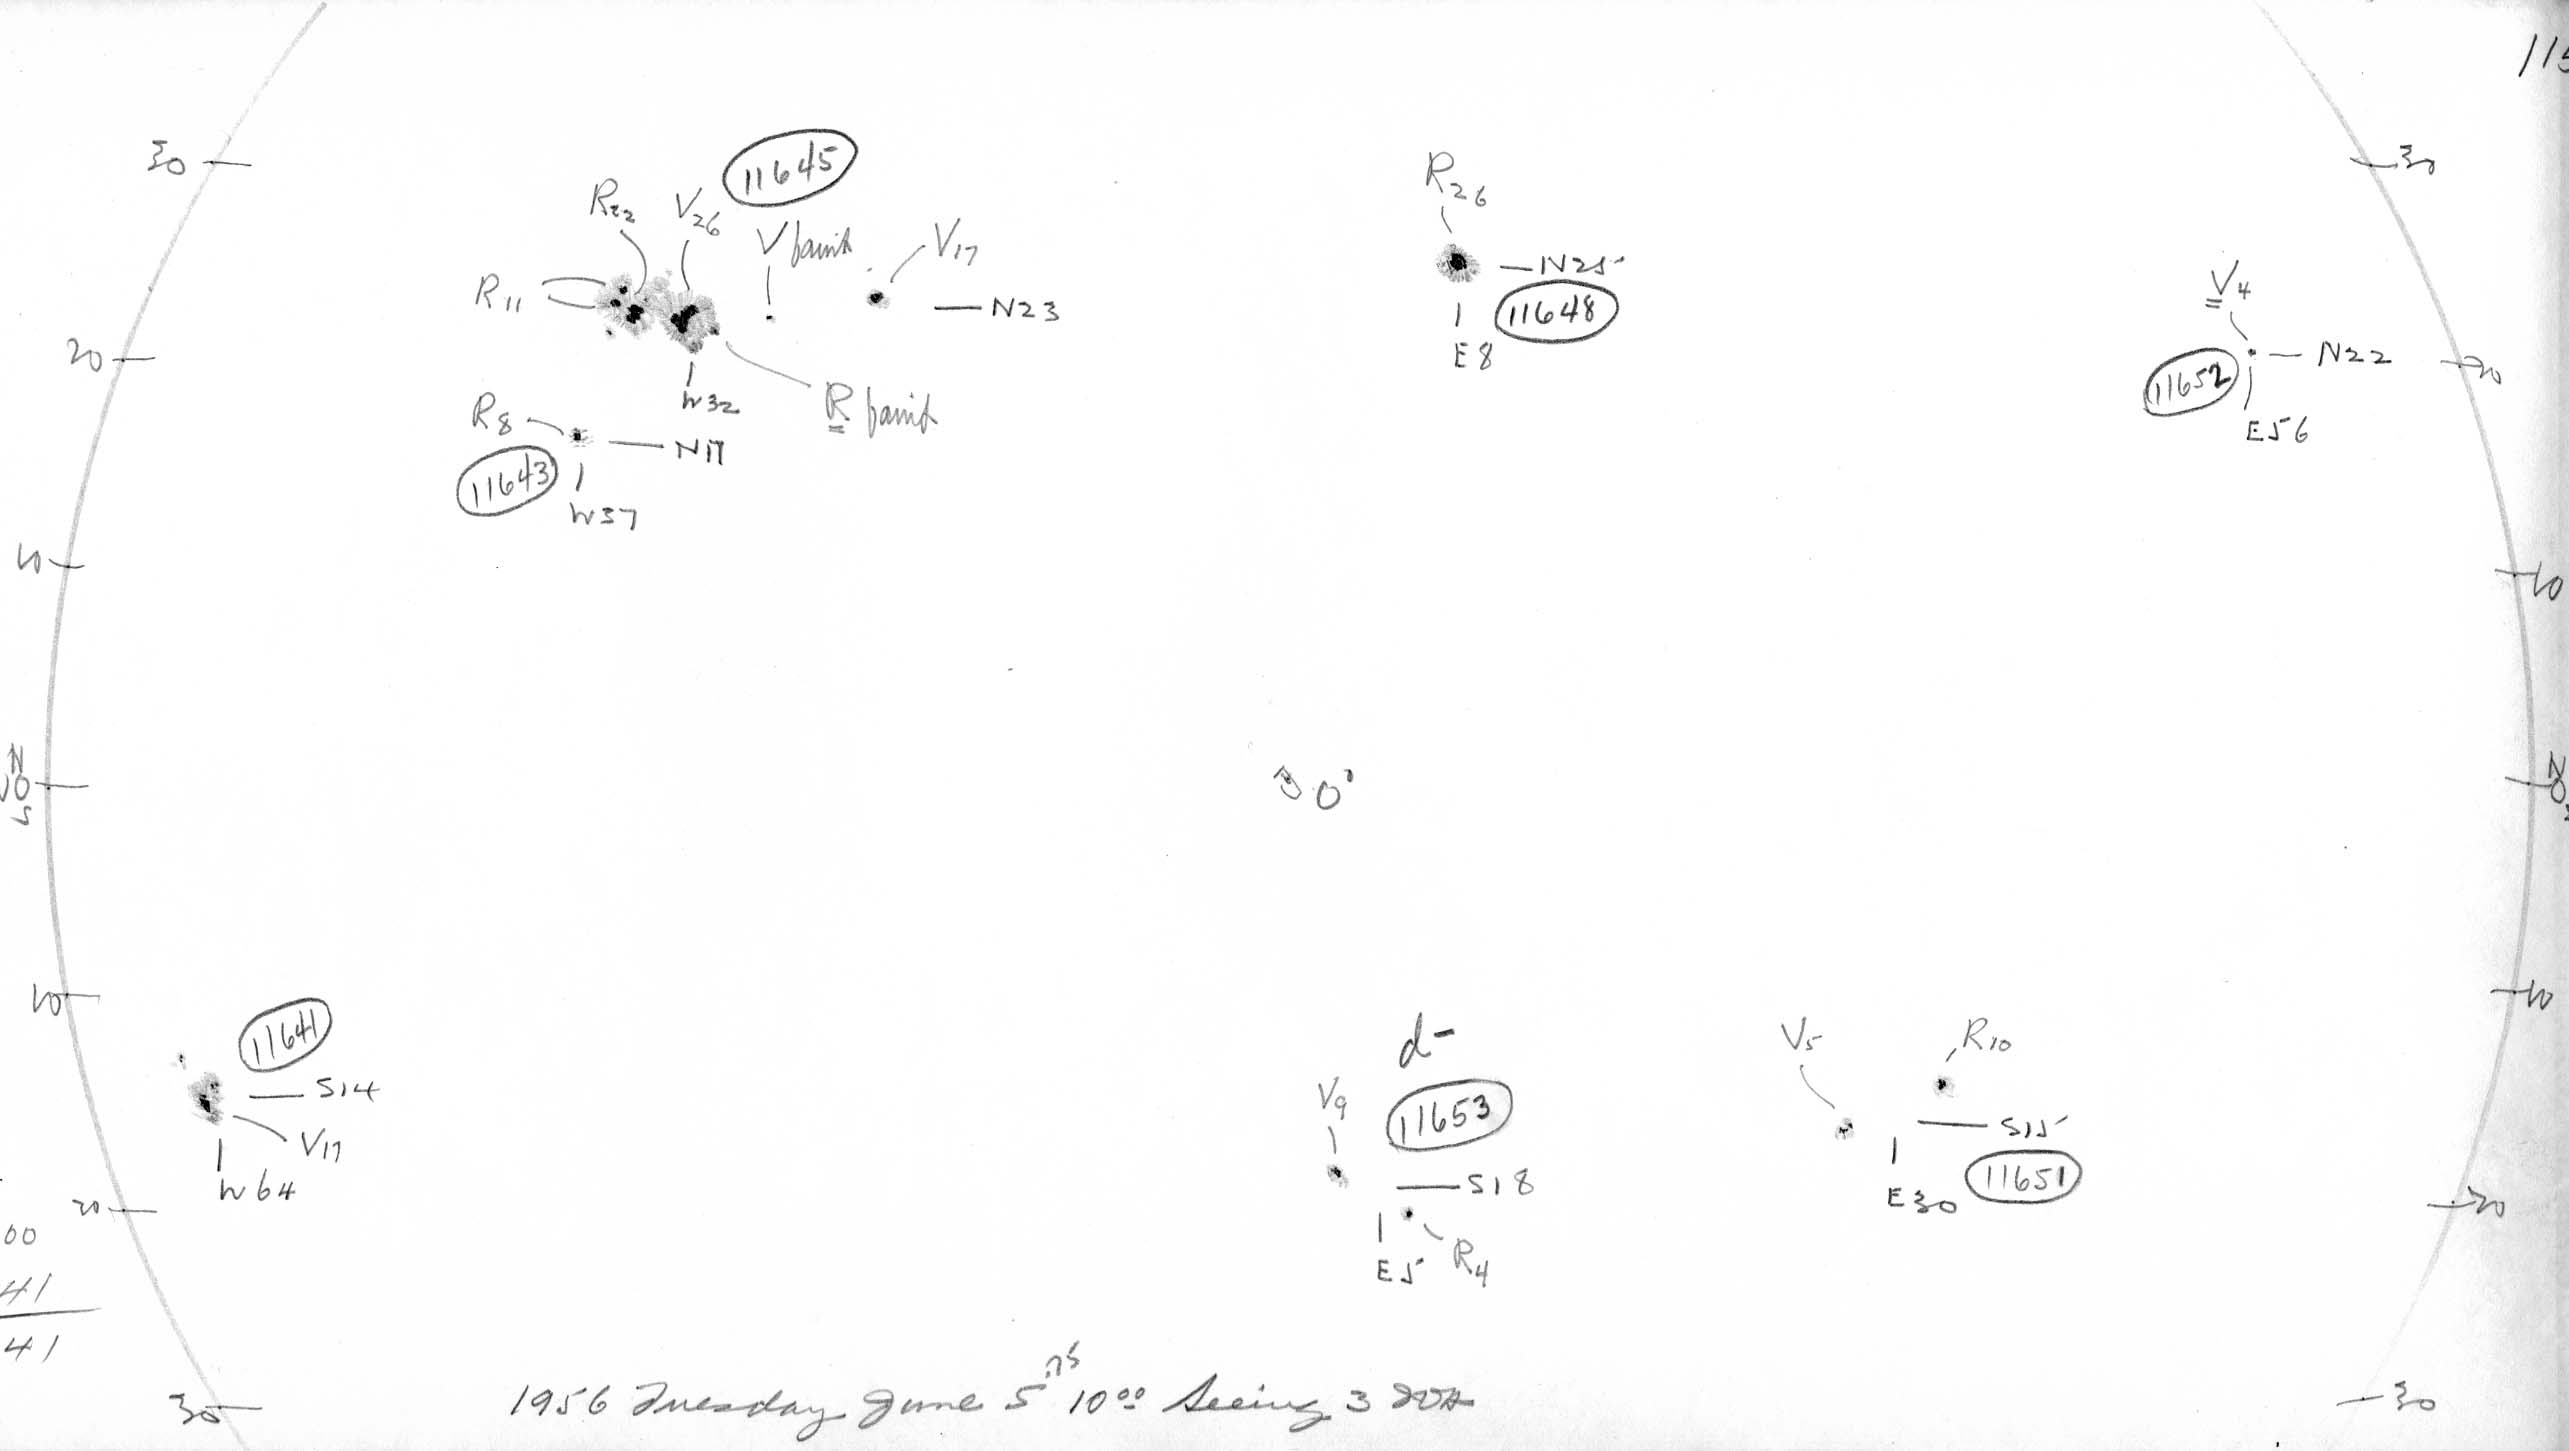 115
30
30
11645
R22
V26
V faint
V17
R11
N23
R26
N25
11648
E8
V4
N22
11652
E56
20
20
W32
R faint
R8
N17
11643
W37
10
10
N
0
S
0°
N
0
10
10
11641
S14
V17
W64
d-
V9
11653
S18
E5
R4
V5
R10
S15
11651
E30
20
20
00
41
41
30
30
1956 Tuesday June 5 .75 10 00 Seeing 3